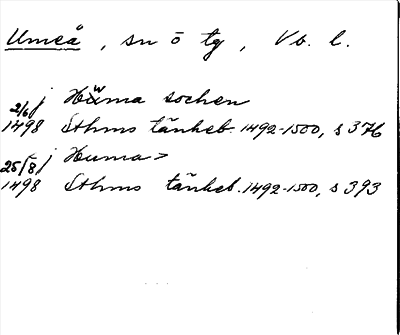 Umeå, sn ö tg, Vb. l.
2/6 j Hwma sochen
1498 Sthms tänkeb. 1492-1500, s 376
25/8 j Huma>
1498 Sthms tänkeb. 1492-1500, s 393